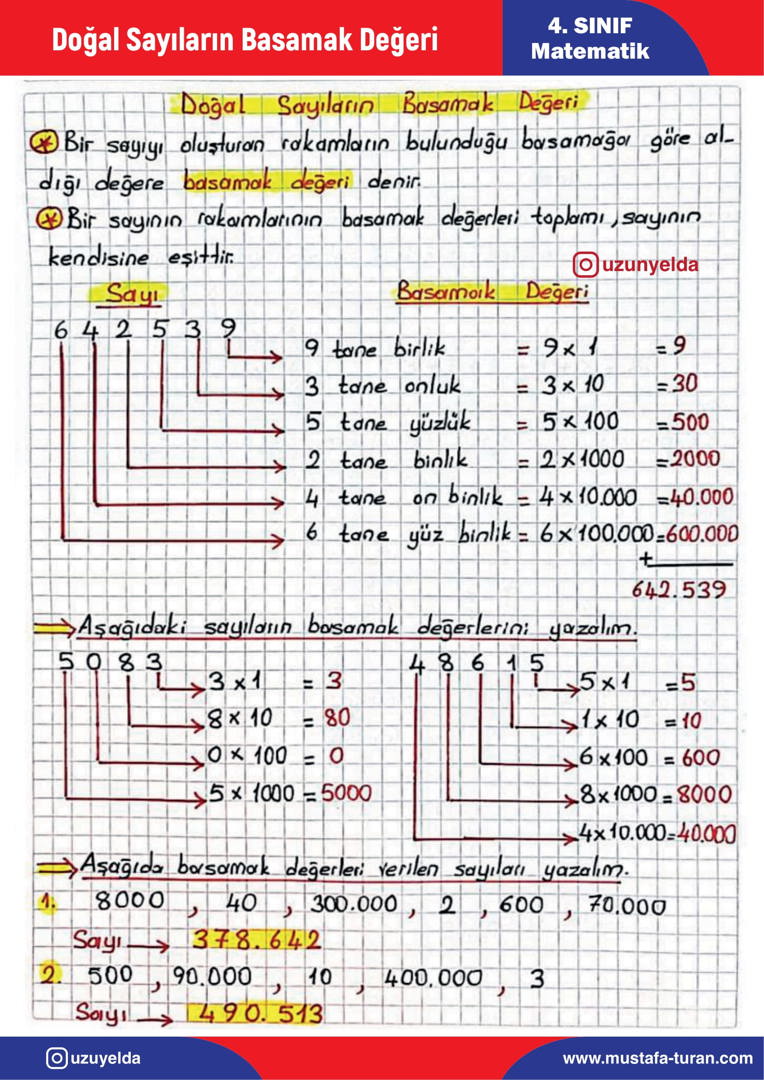 Doğal Sayıların Basamak Değeri
4. SINIF
Matematik
Doğal Sayıların Basamak Değeri
* Bir sayıyı oluşturan rakamların bulunduğu basamağa göre al-
dığı değere basamak değeri denir.
* Bir sayının rakamlarının basamak değerleri toplamı, sayının
kendisine eşittir.
uzunyelda
Sayı Basamak Değeri
6 4 2 5 3 9
9 tane birlik = 9 x 1 = 9
3 tane onluk = 3 x 10 = 30
5 tane yüzlük = 5 x 100 = 500
2 tane binlik = 2 x 1000 = 2000
4 tane on binlik = 4 x 10.000 = 40.000
6 tane yüz binlik = 6 x 100.000 = 600.000
+
642.539
⇒ Aşağıdaki sayıların basamak değerlerini yazalım.
5 0 8 3 4 8 6 1 5
3 x 1 = 3 5 x 1 = 5
8 x 10 = 80 1 x 10 = 10
0 x 100 = 0 6 x 100 = 600
5 x 1000 = 5000 8 x 1000 = 8000
4 x 10.000 = 40.000
⇒ Aşağıda basamak değerleri verilen sayıları yazalım.
1. 8000 , 40 , 300.000 , 2 , 600 , 70.000
Sayı → 378.642
2. 500 , 90.000 , 10 , 400.000 , 3
Sayı → 490.513
uzuyelda
www.mustafa-turan.com